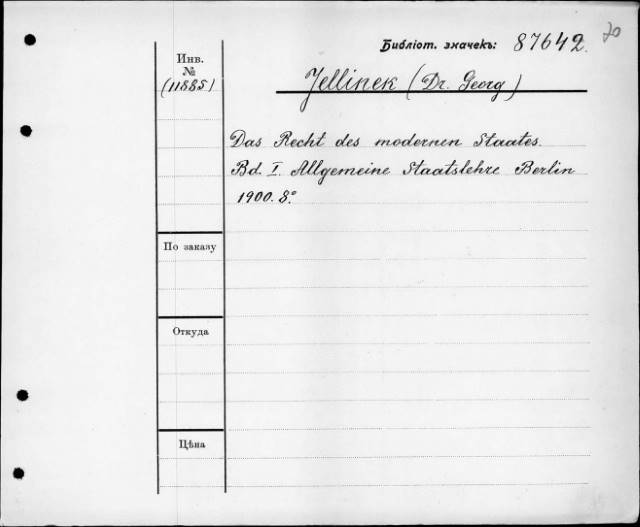 Библіот. значекъ: 87642.
20
Инв.
№
(11885)
Jellinek (Dr. Georg)
Das Recht des modernen Staates.
Bd. I. Allgemeine Staatslehre Berlin
1900. 8.º
По заказу
Откуда
Цѣна